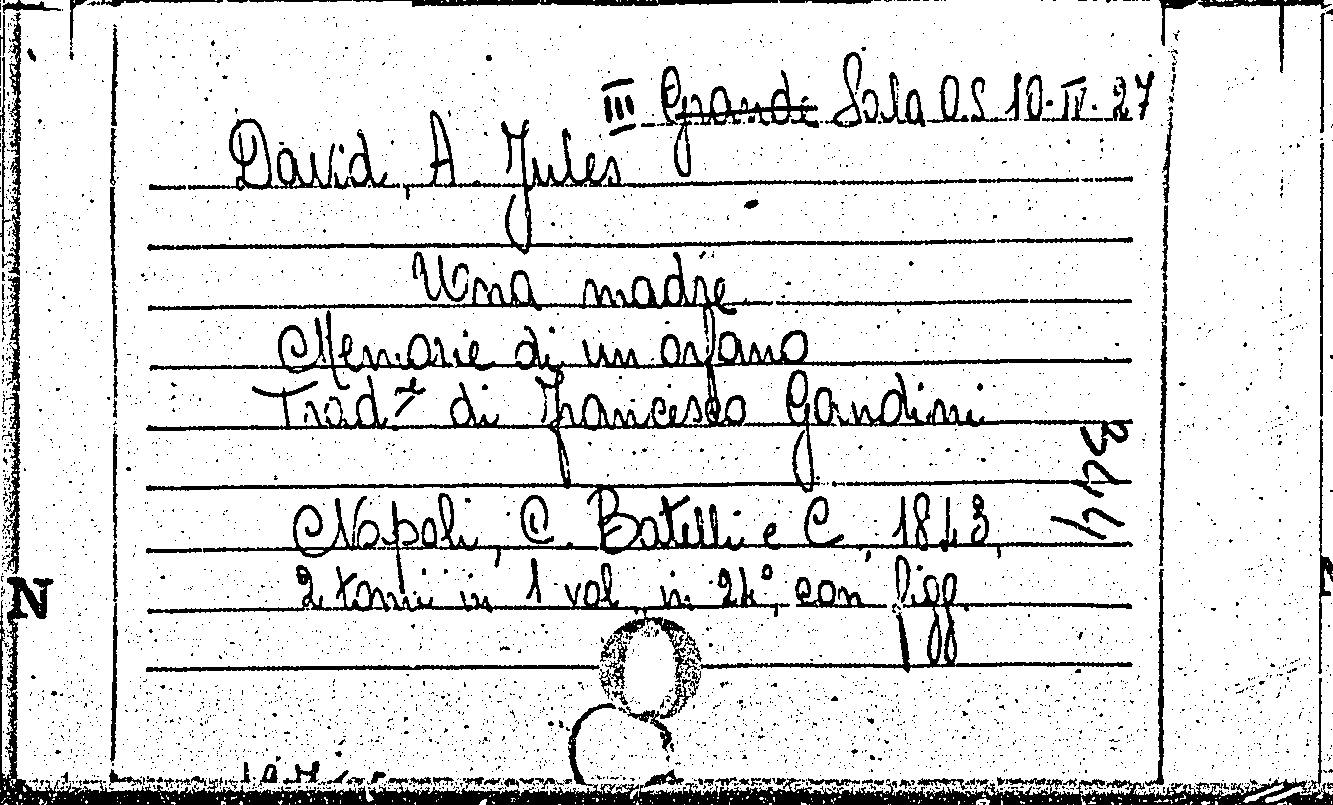 III Grande Sala O.S 10.IV.27
David, A. Jules
Una madre
Memorie di un orfano
Trad.e di Francesco Gandini
Napoli, C. Batelli e C., 1843,
2 tomi in 1 vol. in 24°, con figg.
N